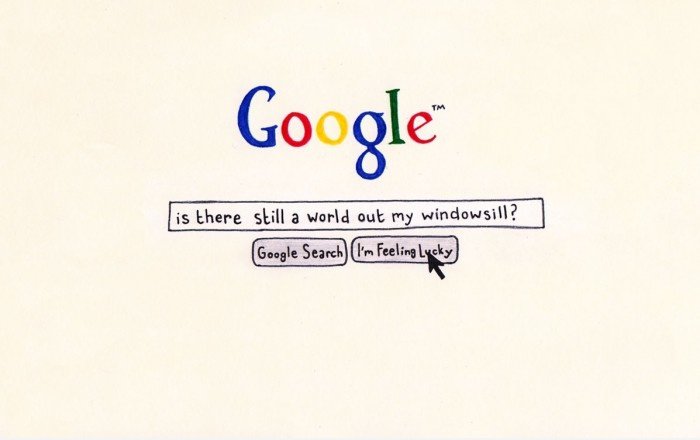 Google™
is there still a world out my windowsill?
Google Search I'm Feeling Lucky